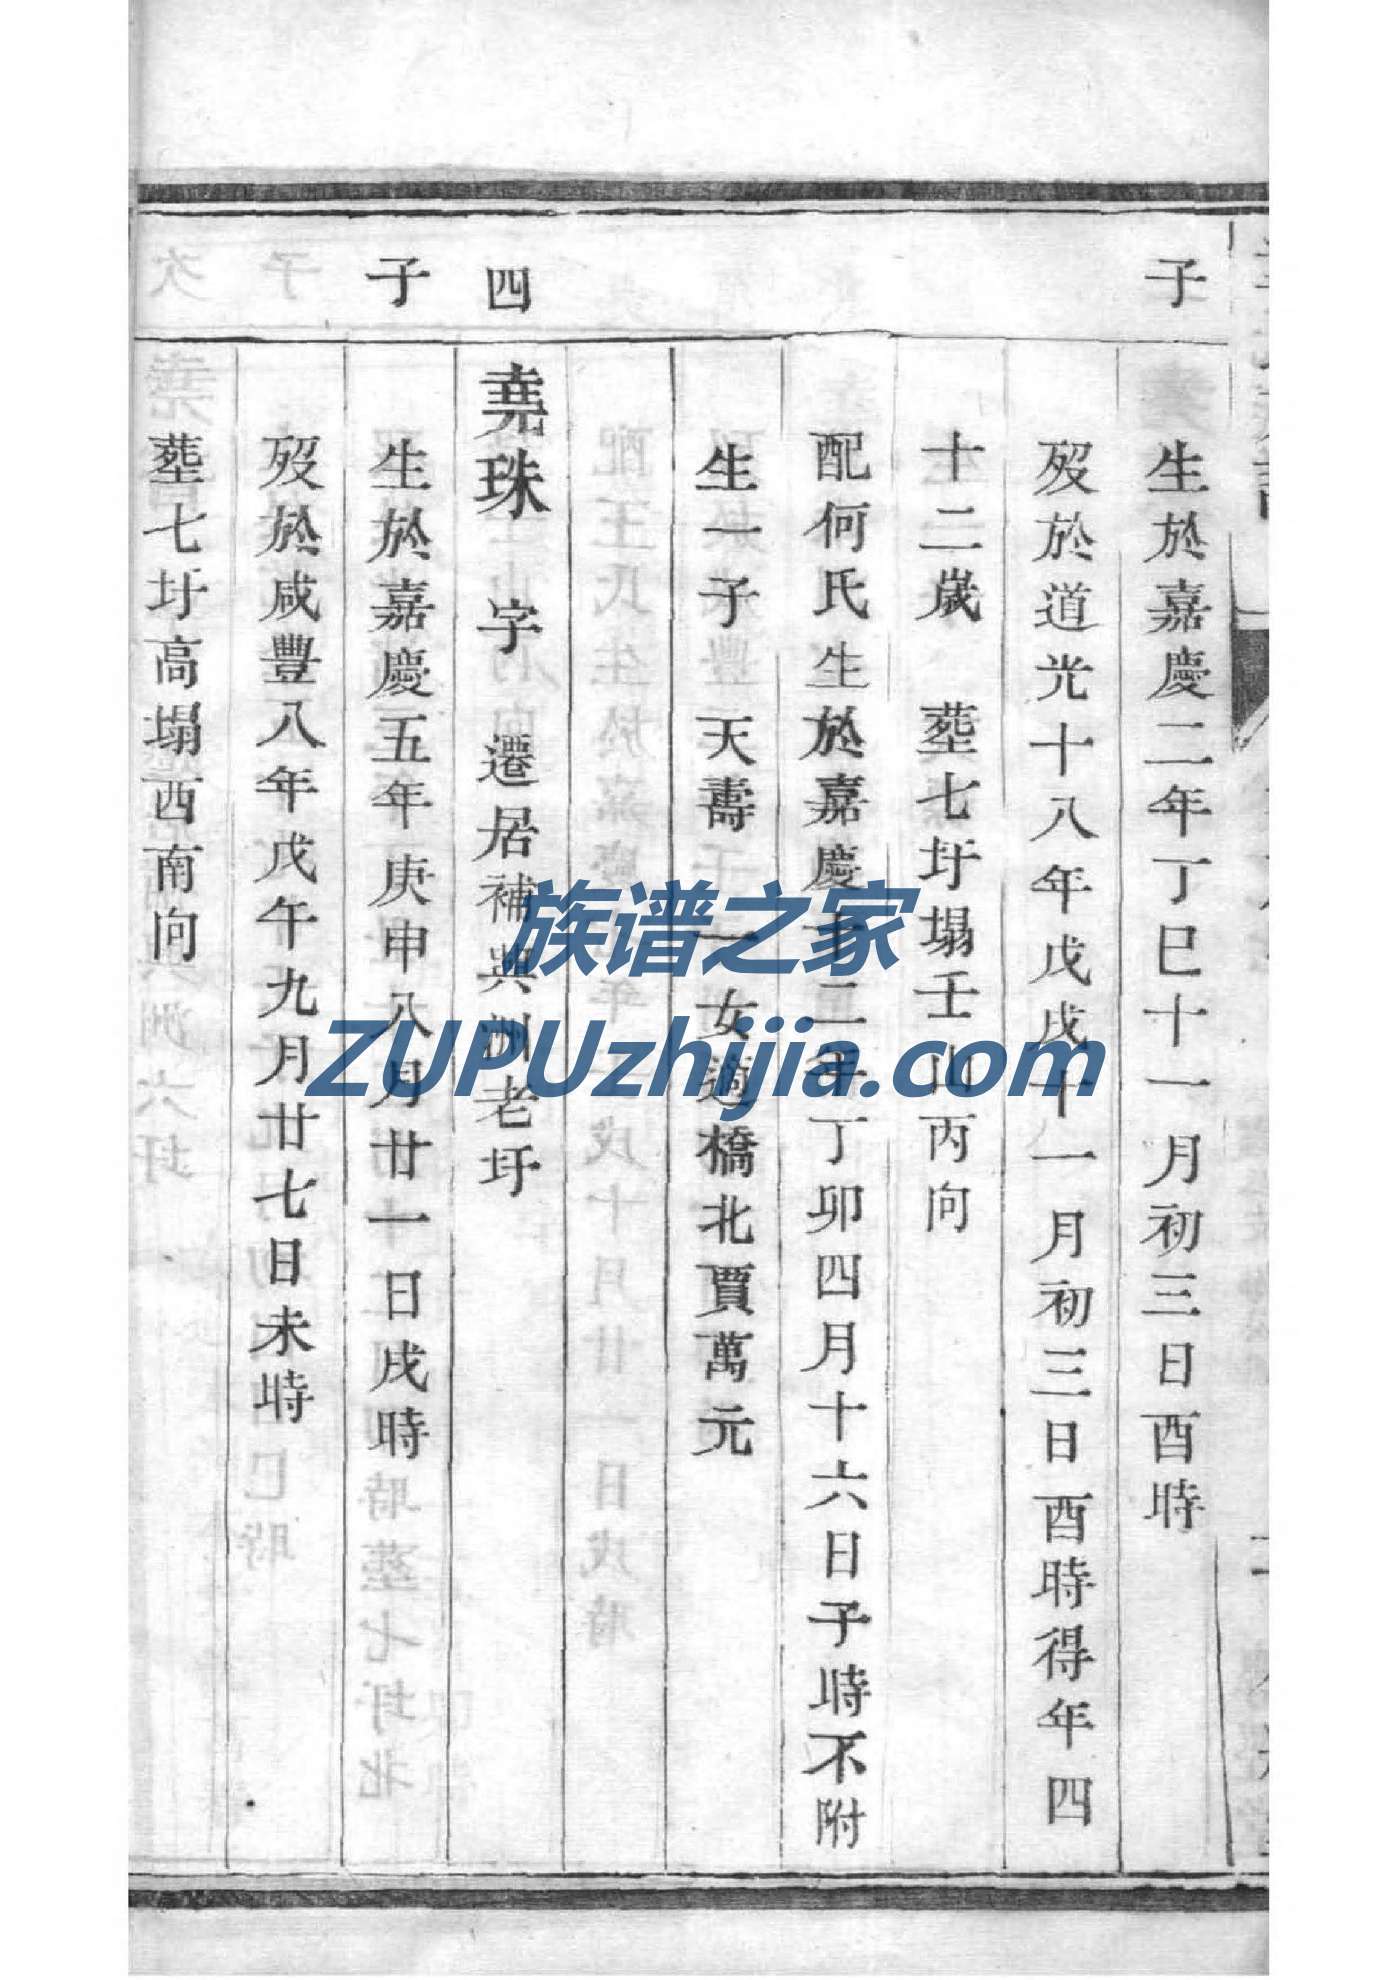 子
生於嘉慶二年丁巳十一月初三日酉時
歿於道光十八年戊戌十一月初三日酉時得年四
十二歲　葬七圩塌壬山丙向
配何氏生於嘉慶十二年丁卯四月十六日子時不附
生一子　天壽　一女適橋北賈萬元
四
堯珠　字　遷居補興洲老圩
子
生於嘉慶五年庚申八月廿一日戌時
歿於咸豐八年戊午九月廿七日未時
葬七圩高塌西南向
族谱之家
ZUPUzhijia.com